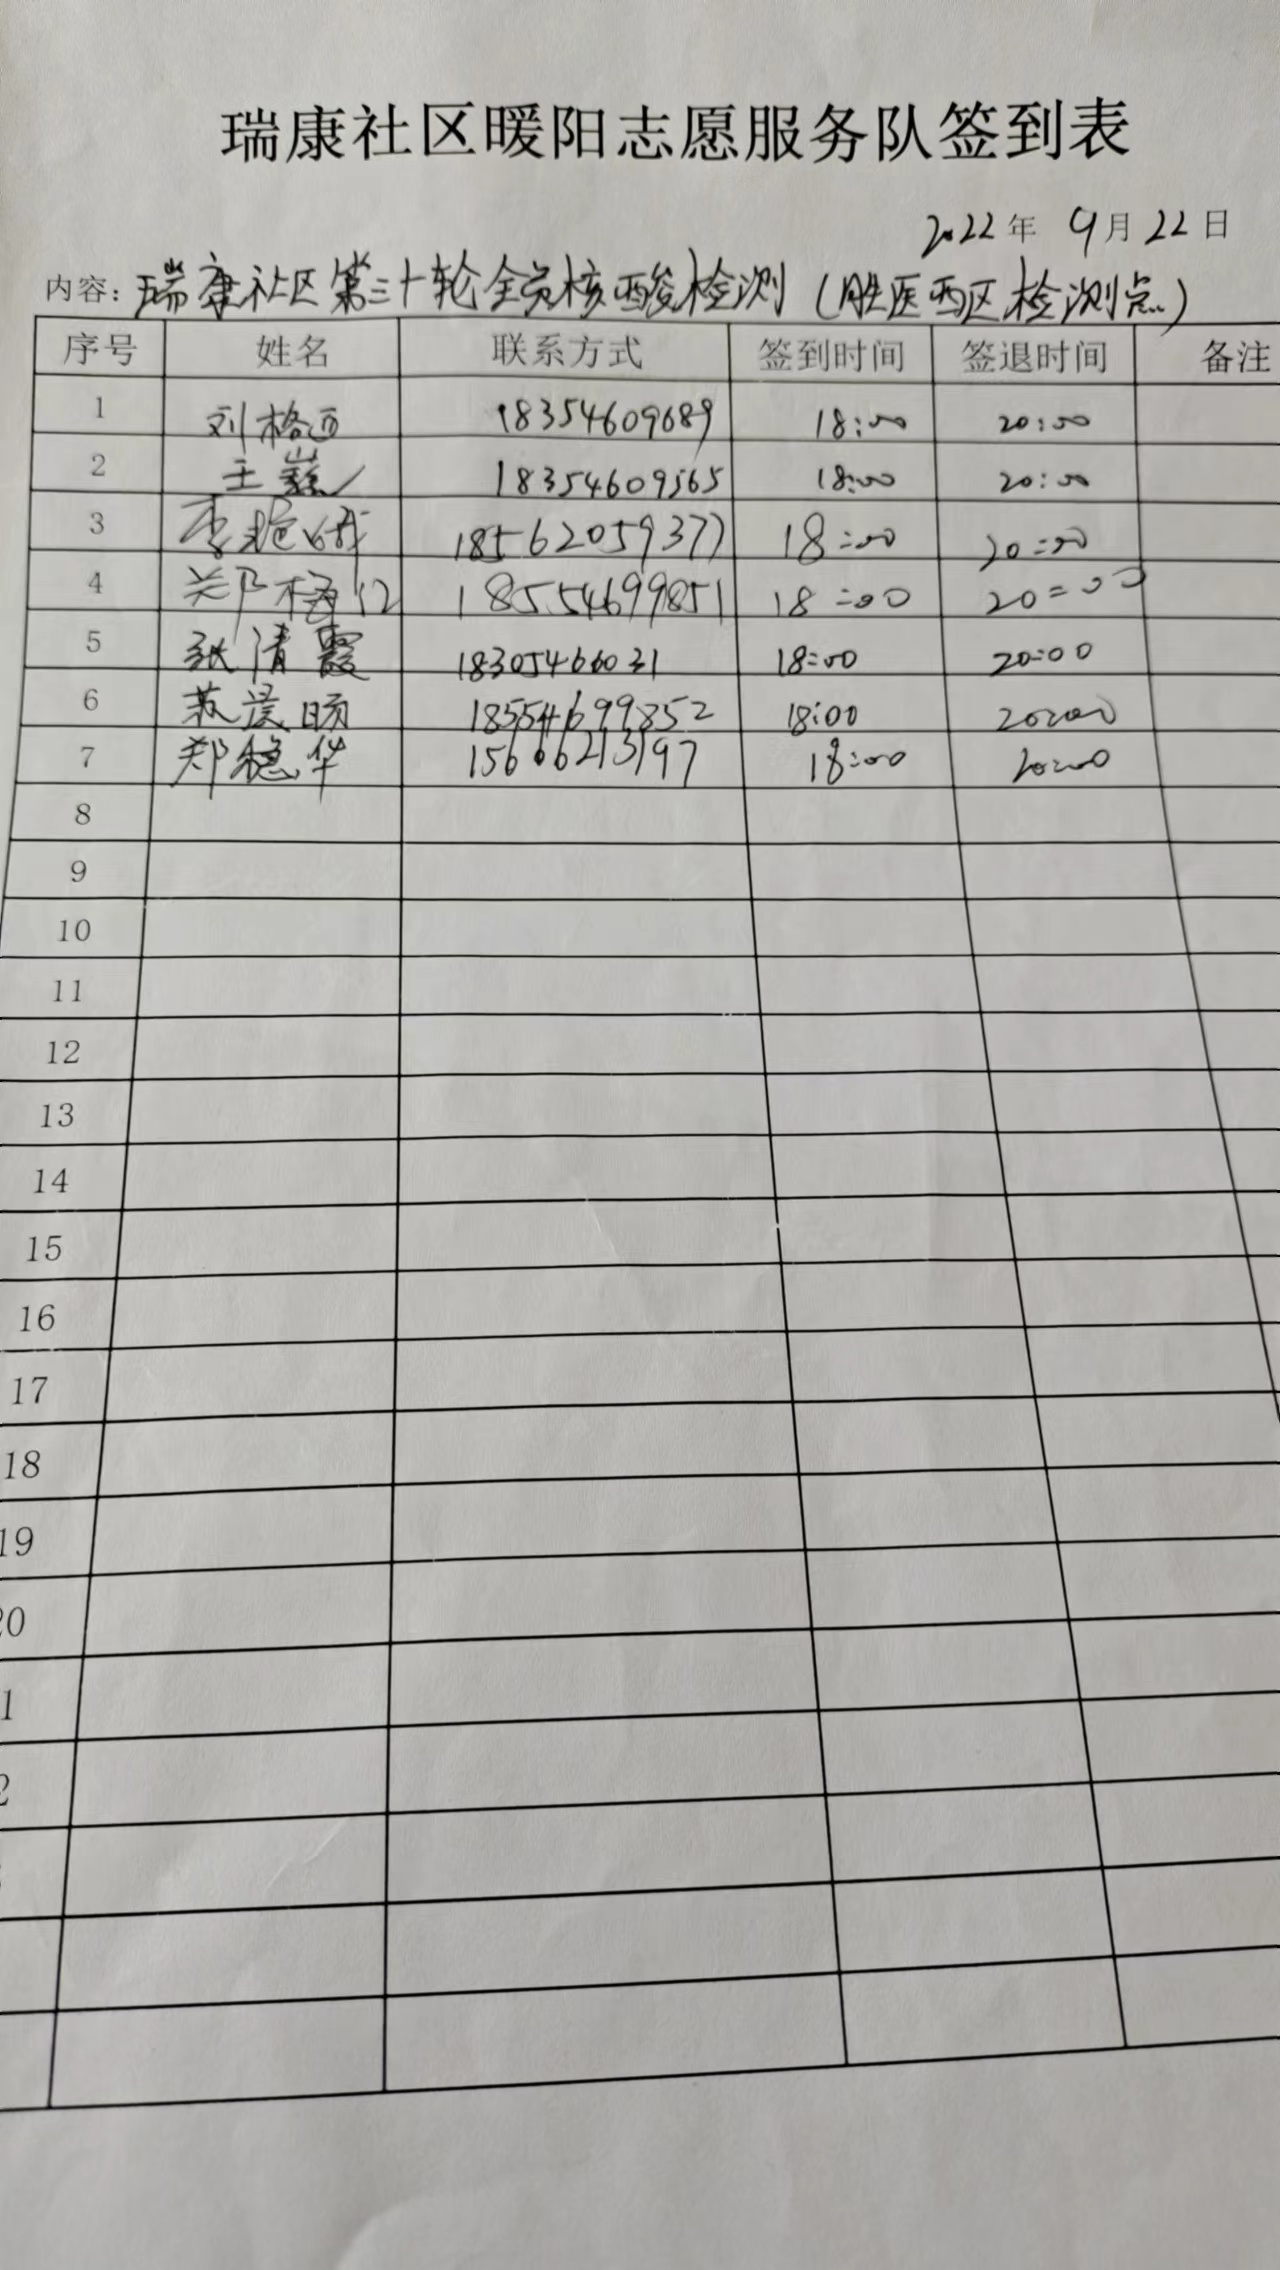 瑞康社区暖阳志愿服务队签到表
2022年 9月22日
内容：瑞康社区第三十轮全员核酸检测（胜医西区检测点）
序号 姓名 联系方式 签到时间 签退时间 备注
1 刘格 18354609689 18:00 20:00
2 王 18354609565 18:00 20:00
3 李艳 18562059377 18:00 20:00
4 关乃梅 18554699851 18:00 20:00
5 张清霞 18305466031 18:00 20:00
6 18554699852 18:00 20:00
7 郑稳华 15666213197 18:00 20:00
8
9
10
11
12
13
14
15
16
17
18
19
20
1
2